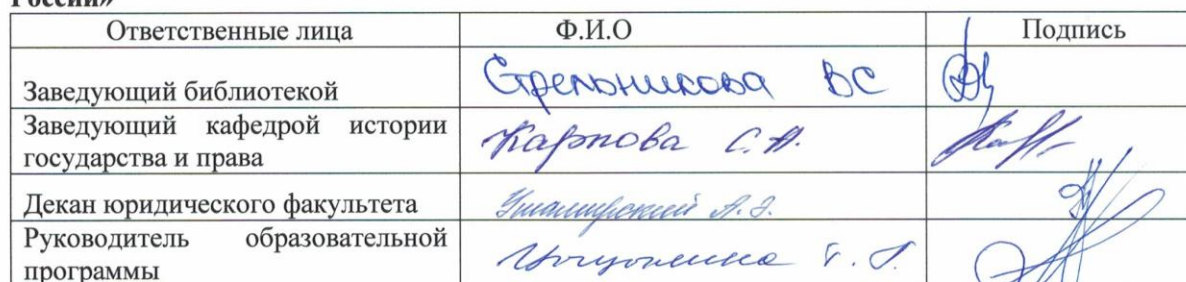 России»
Ответственные лица Ф.И.О Подпись
Заведующий библиотекой Стрельникова ВС
Заведующий кафедрой истории
государства и права Карпова С.А.
Декан юридического факультета
Руководитель образовательной
программы